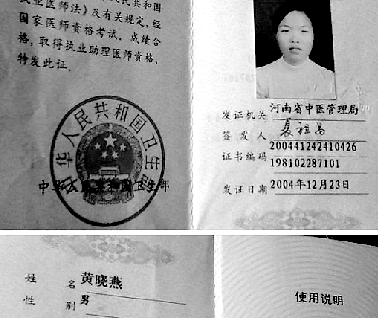 执业医师法》及有关规定,经
国家医师资格考试,成绩合
格,取得执业助理医师资格,
特发此证.
中华人民共和国卫生部
中华人民共和国卫生部
发证机关 河南省中医管理局
签发人
200441242410426
证书编码
198102287101
发证日期 2004年12月23日
姓名 黄晓燕
性别 男
使用说明